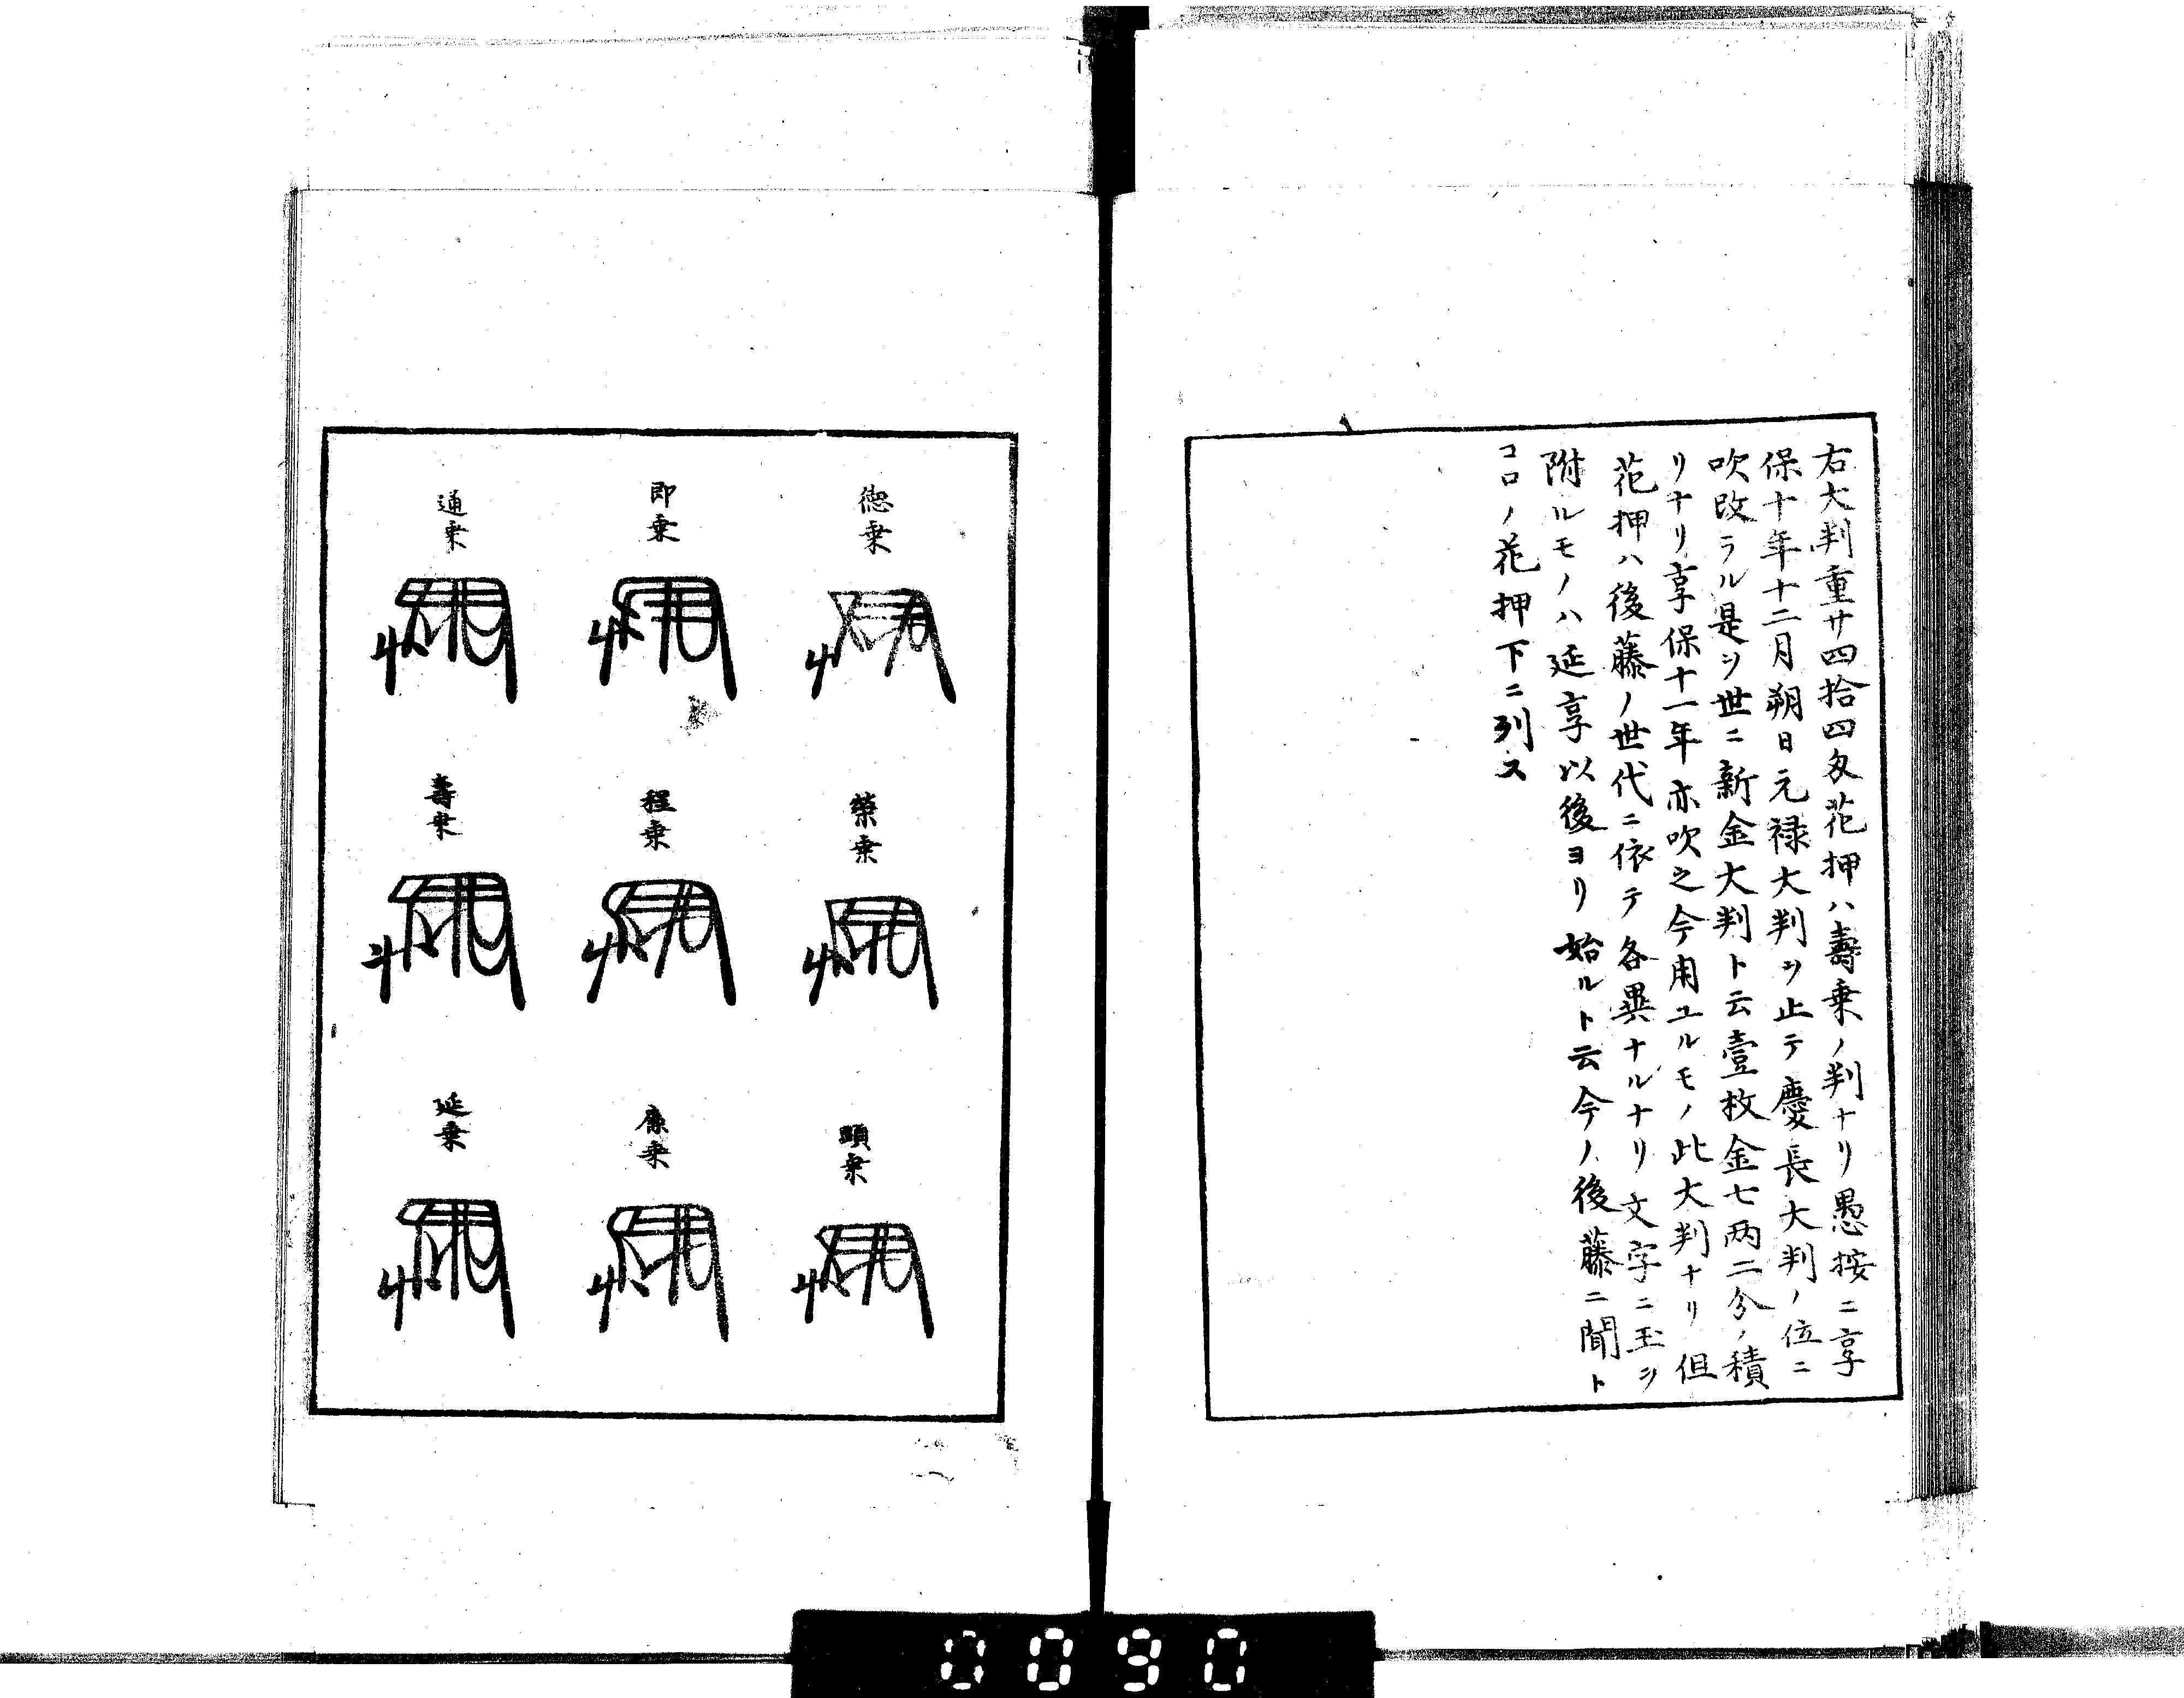 右大判重サ四拾四匁花押ハ壽乗ノ判ナリ愚按ニ享
保十年十二月朔日元禄大判ヲ止テ慶長大判ノ位ニ
吹改ラル是ヲ世ニ新金大判ト云壹枚金七两二分ノ積
リナリ享保十一年亦吹之今用ユルモノ此大判ナリ但
花押ハ後藤ノ世代ニ依テ各異ナルナリ文字ニ玉ヲ
附ルモノハ延享以後ヨリ始ルト云今ノ後藤ニ聞ト
コロノ花押下ニ列ス
德乗
榮乗
顕乗
即乗
程乗
廉乗
通乗
壽乗
延乗
0090